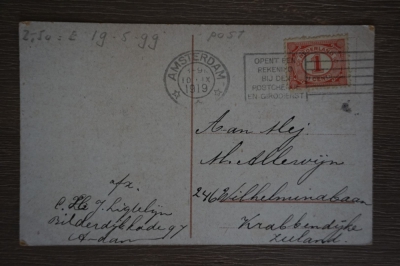 2,50 : E 19-5-99
post
AMSTERDAM
1919
OPENT EEN
REKENING
BIJ DEN
POSTCHEQUE
EN GIRODIENST
1
Aan Mej.
M. Allewijn
246 Wilhelminalaan
Krabbendijke
Zeeland.
afz.
J. Ligtelijn
Bilderdijkkade 97
A-dam